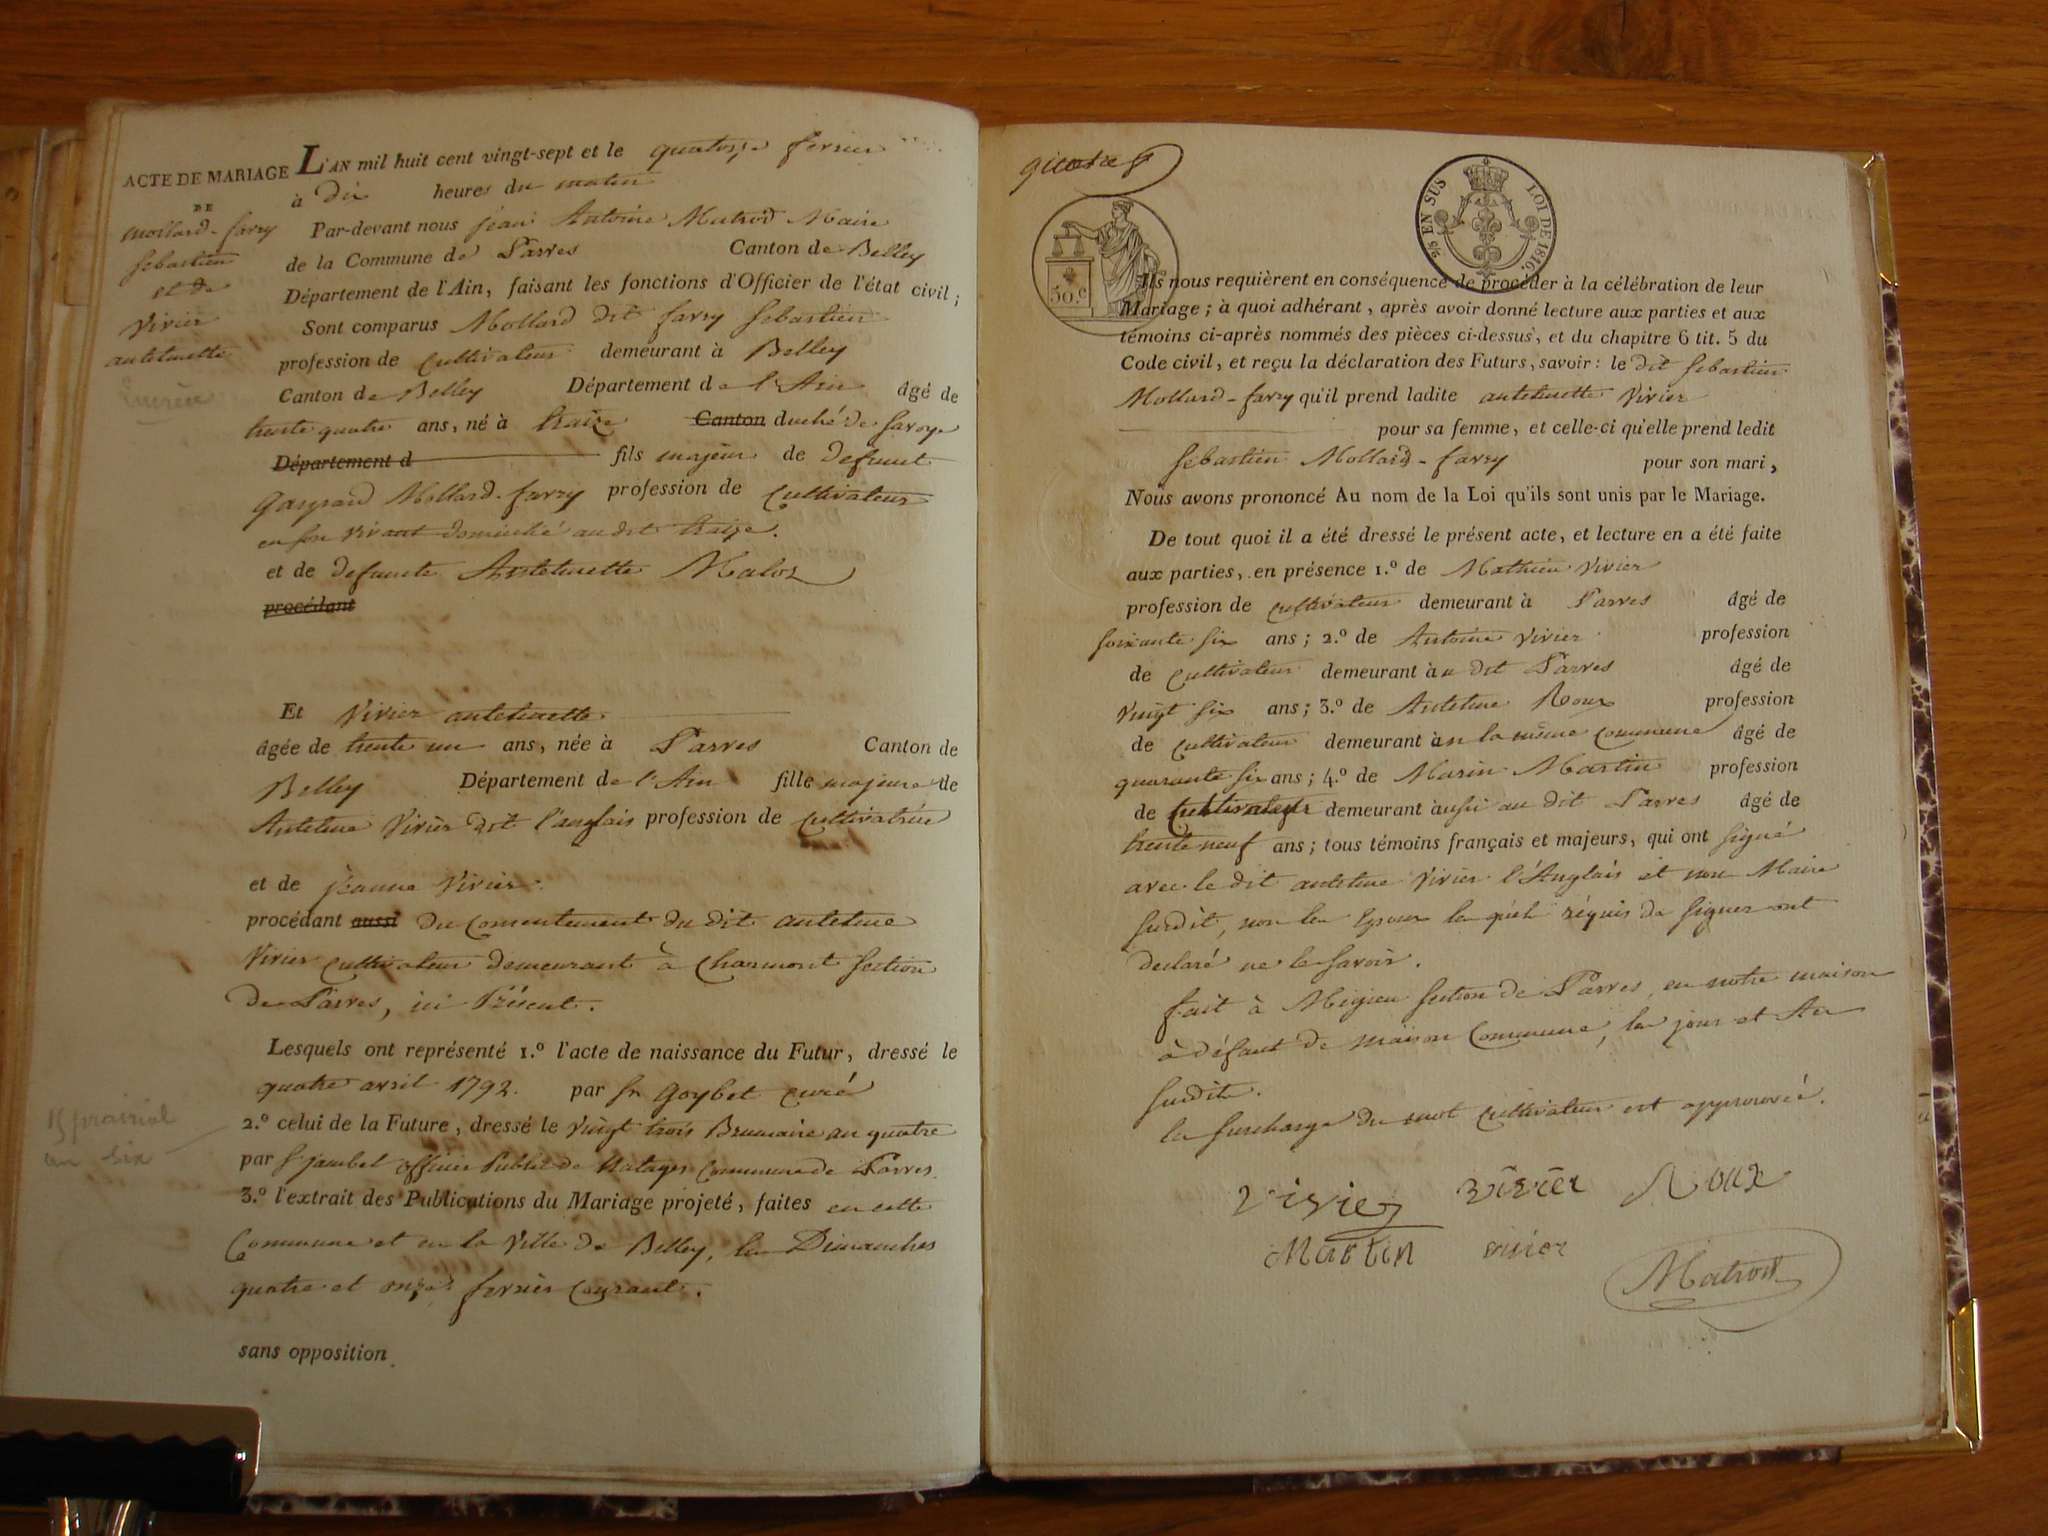 ACTE DE MARIAGE
DE
Mollard-favzy
Sebastien
et de
Vivier
antelmette
L'AN mil huit cent vingt-sept et le quatorze fevrier
à dix heures du matin
Par-devant nous jean Antoine Matrod Maire
de la Commune de Parves Canton de Belley
Département de l'Ain, faisant les fonctions d'Officier de l'état civil ;
Sont comparus Mollard dit favzy Sebastien
profession de Cultivateur demeurant à Belley
Canton de Belley Département de l'Ain âgé de
trente quatre ans, né à traize Canton duché de Savoye
Département d fils majeur de defunt
Gaspard Mollard-favzy profession de Cultivateur
en son vivant domicilié audit traize.
et de defunte Antelmette Maloz
procédant
Et Vivier antelmette
âgée de trente un ans, née à Parves Canton de
Belley Département de l'Ain fille majeure de
Antelme Vivier dit l'anglais profession de Cultivatrice
et de jeanne Vivier
procédant aussi du Consentement du dit antelme
Vivier Cultivateur demeurant à Charmont Section
de Parves, ici Présent.
Lesquels ont représenté 1.º l'acte de naissance du Futur, dressé le
quatre avril 1792. par Sr Goybet curé
15 prairial
an six
2.º celui de la Future, dressé le Vingt trois Brumaire an quatre
par Sr jambet officier Public de Nattages Commune de Parves
3.º l'extrait des Publications du Mariage projeté, faites en cette
Commune et en la Ville de Belley, les Dimanches
quatre et onze fevrier Courant.
sans opposition
quatre
2/5 EN SUS LOI DE 1816.
50.c
Ils nous requièrent en conséquence de procéder à la célébration de leur
Mariage ; à quoi adhérant, après avoir donné lecture aux parties et aux
témoins ci-après nommés des pièces ci-dessus, et du chapitre 6 tit. 5 du
Code civil, et reçu la déclaration des Futurs, savoir : le dit Sebastien
Mollard-favzy qu'il prend ladite antelmette Vivier
pour sa femme, et celle-ci qu'elle prend ledit
Sebastien Mollard-favzy pour son mari,
Nous avons prononcé Au nom de la Loi qu'ils sont unis par le Mariage.
De tout quoi il a été dressé le présent acte, et lecture en a été faite
aux parties, en présence 1.º de Mathieu Vivier
profession de cultivateur demeurant à Parves âgé de
soixante six ans ; 2.º de Antoine Vivier profession
de Cultivateur demeurant au dit Parves âgé de
Vingt six ans ; 3.º de Antelme Roux profession
de Cultivateur demeurant àn la même Commune âgé de
quarante six ans ; 4.º de Marin Martin profession
de Cultivateur demeurant aussi au dit Parves âgé de
trente neuf ans ; tous témoins français et majeurs, qui ont signé
avec le dit antelme Vivier l'Anglais et nou Maire
susdit, non les Epoux les quels réquis de signer ont
declaré ne le savoir.
fait à Migieu Section de Parves, en notre maison
à défaut de maison Commune, les jour et An
susdits.
la surcharge du mot Cultivateur est approuvée.
Vivier vivier Roux
Martin vivier
Matrod